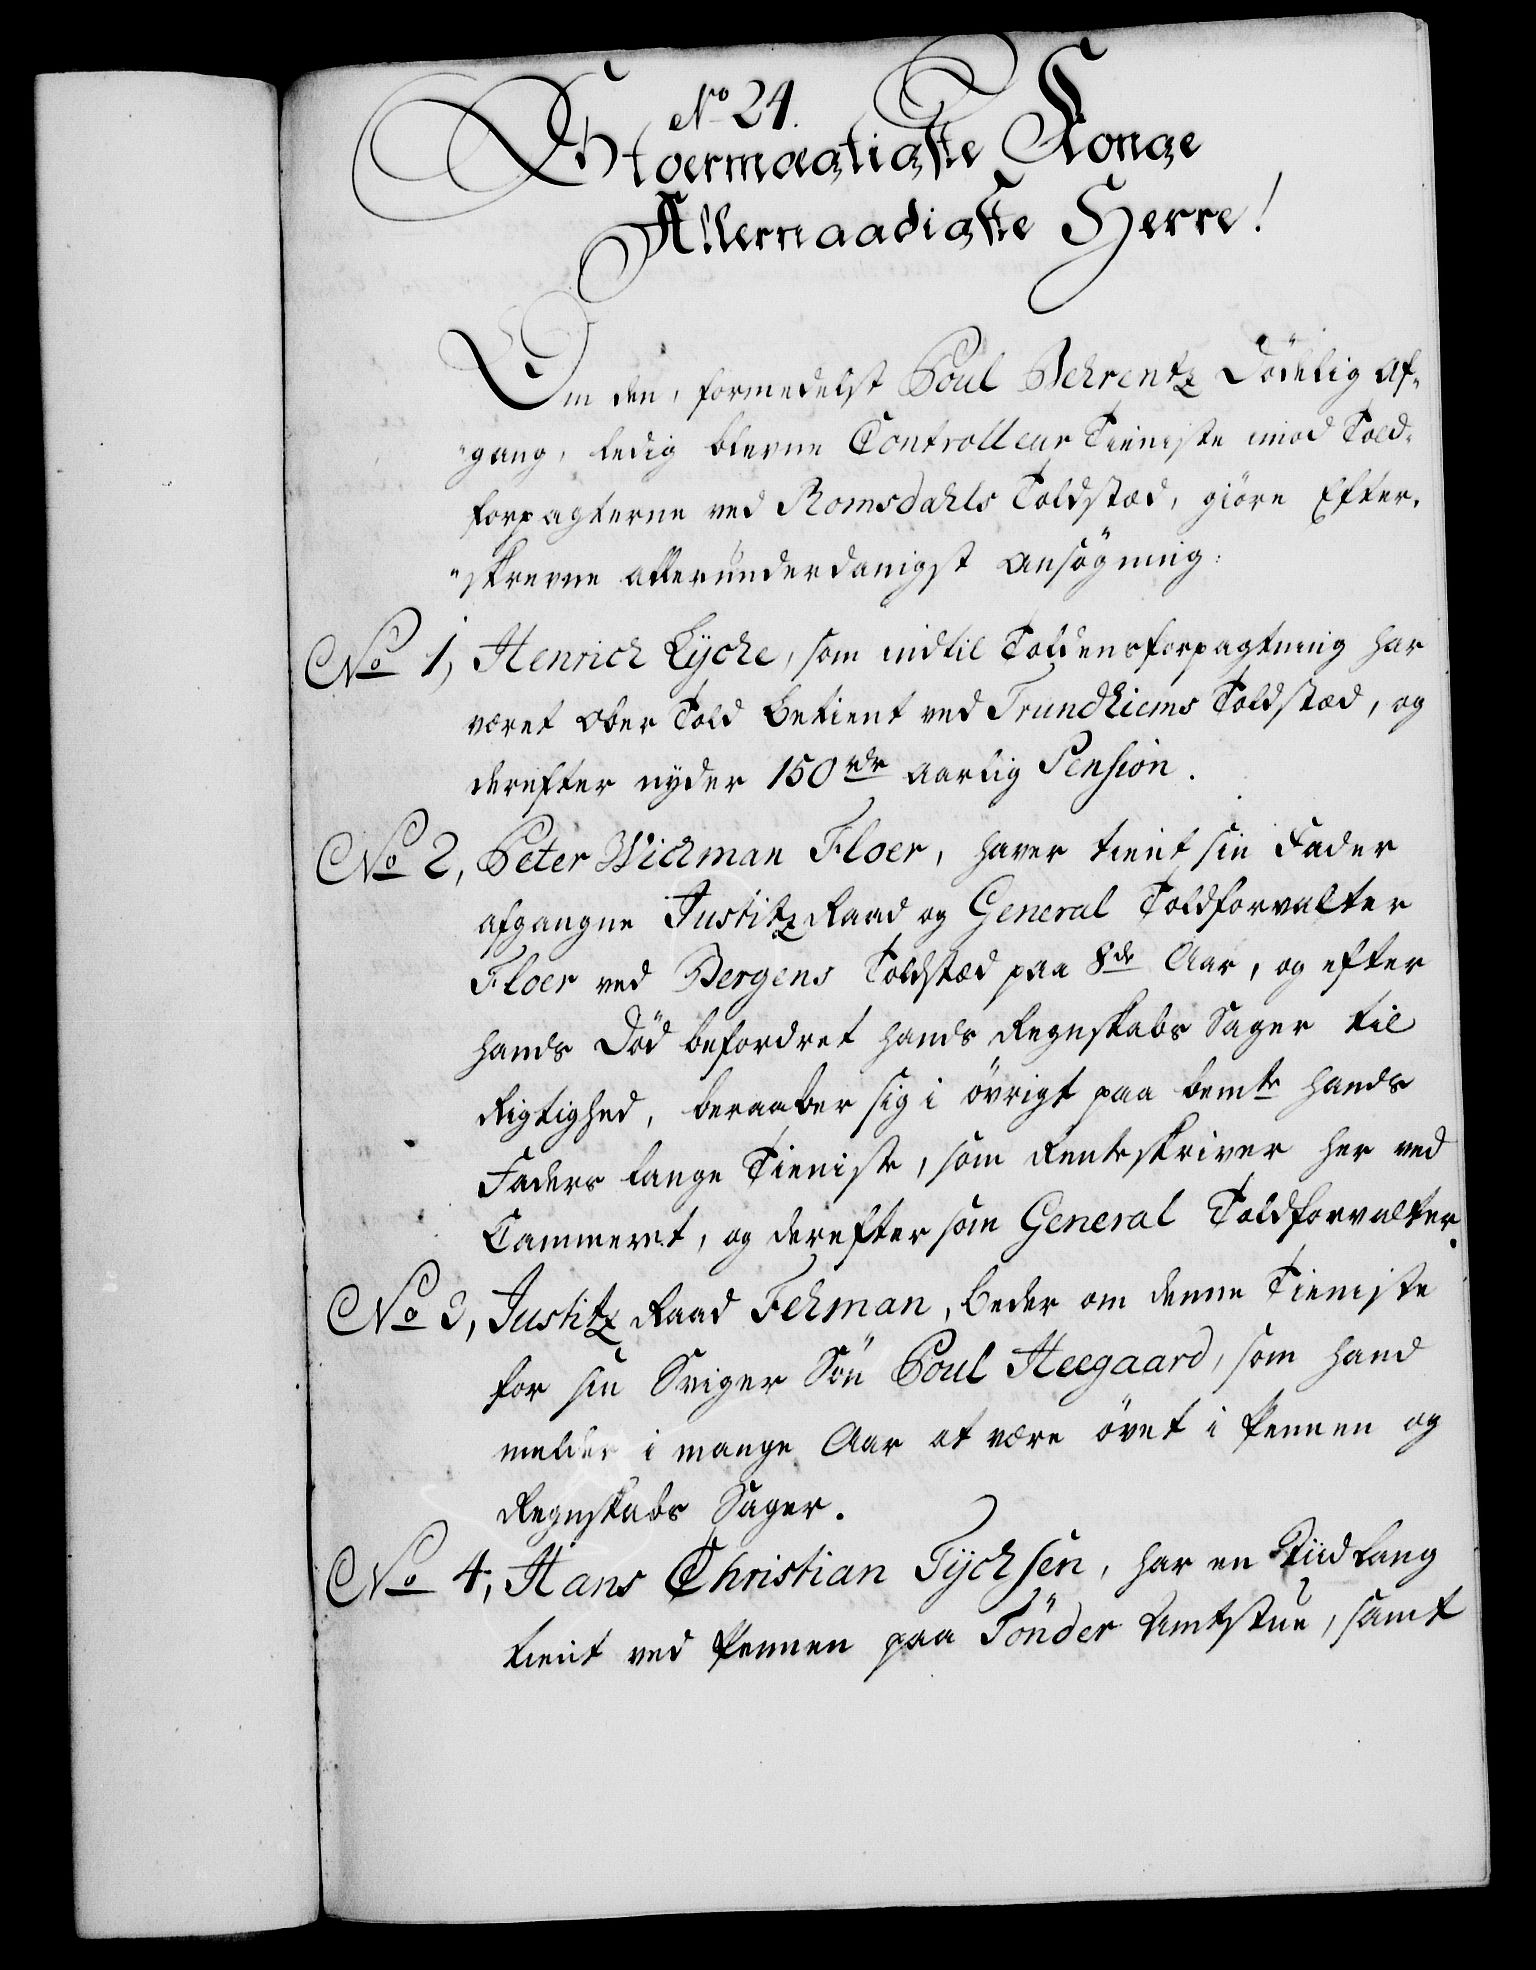 No 24.
Stoermægtigste Konge
Allernaadigste Herre!
Om den, formedelst Poul Behrentz Dödelig Af-
"gang, ledig blevne Controlleur Tieniste imod Told-
forpagterne ved Romsdahls Toldstæd, giöre Efter-
"skrevne allerunderdanigst Ansögning:
No 1, Henrich Lÿche, som indtil Toldensforpagtning har
været Ober Told Betient ved Trundhiems Toldstæd, og
derefter nyder 150 rdr aarlig Pension.
No 2, Peter Wichman Floer, haver tient sin Fader
afgangne Justitz Raad og General Toldforvalter
Floer ved Bergens Toldstæd paa 8de Aar, og efter
hands Död befordret hands Regnskabs Sager til
Rigtighed, beraaber sig i övrigt paa bemte hands
Faders lange Tieniste, som Renteskriver her ved
Cammeret, og derefter som General Toldforvalter.
No 3, Justitz Raad Fehman, beder om denne Tieniste
for sin Sviger Sön Poul Heegaard, som hand
melder i mange Aar at være övet i Pennen og
Regnskabs Sager.
No 4, Hans Christian Tÿchsen, har en Tiid lang
tient ved Pennen paa Tönder Amtstue, samt